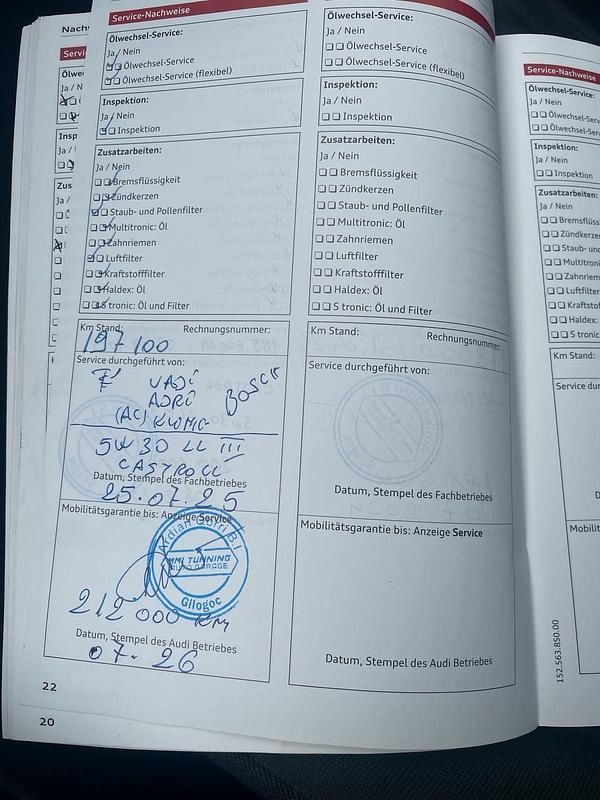 Nachw
Service-Nachweise
Ölwechsel-Service:
Ja / Nein
Ölwechsel-Service
Ölwechsel-Service (flexibel)
Inspektion:
Ja / Nein
Inspektion
Zusatzarbeiten:
Ja / Nein
Bremsflüssigkeit
Zündkerzen
Staub- und Pollenfilter
Multitronic: Öl
Zahnriemen
Luftfilter
Kraftstofffilter
Haldex: Öl
S tronic: Öl und Filter
Km Stand:
Rechnungsnummer:
197100
Service durchgeführt von:
VAJI
BOSCH
(AC)
5W30 LL III
CASTROLL
Datum, Stempel des Fachbetriebes
25.07.25
Mobilitätsgarantie bis: Anzeige Service
Ardian Gllogoc
TUNNING
AUTO GARAGE
212000 KM
Datum, Stempel des Audi Betriebes
07-26
22
20
Ölwechsel-Service:
Ja / Nein
Ölwechsel-Service
Ölwechsel-Service (flexibel)
Inspektion:
Ja / Nein
Inspektion
Zusatzarbeiten:
Ja / Nein
Bremsflüssigkeit
Zündkerzen
Staub- und Pollenfilter
Multitronic: Öl
Zahnriemen
Luftfilter
Kraftstofffilter
Haldex: Öl
S tronic: Öl und Filter
Km Stand:
Rechnungsnummer:
Service durchgeführt von:
Datum, Stempel des Fachbetriebes
Mobilitätsgarantie bis: Anzeige Service
Datum, Stempel des Audi Betriebes
152.563.850.00
Service-Nachweise
Ölwechsel-Service:
Ja / Nein
Ölwechsel-Servi
Ölwechsel-Serv
Inspektion:
Ja / Nein
Inspektion
Zusatzarbeiten:
Ja / Nein
Bremsflüss
Zündkerze
Staub- un
Multitroni
Zahnriem
Luftfilter
Kraftstof
Haldex: Ö
S tronic:
Km Stand:
Service dur
D
Mobilität